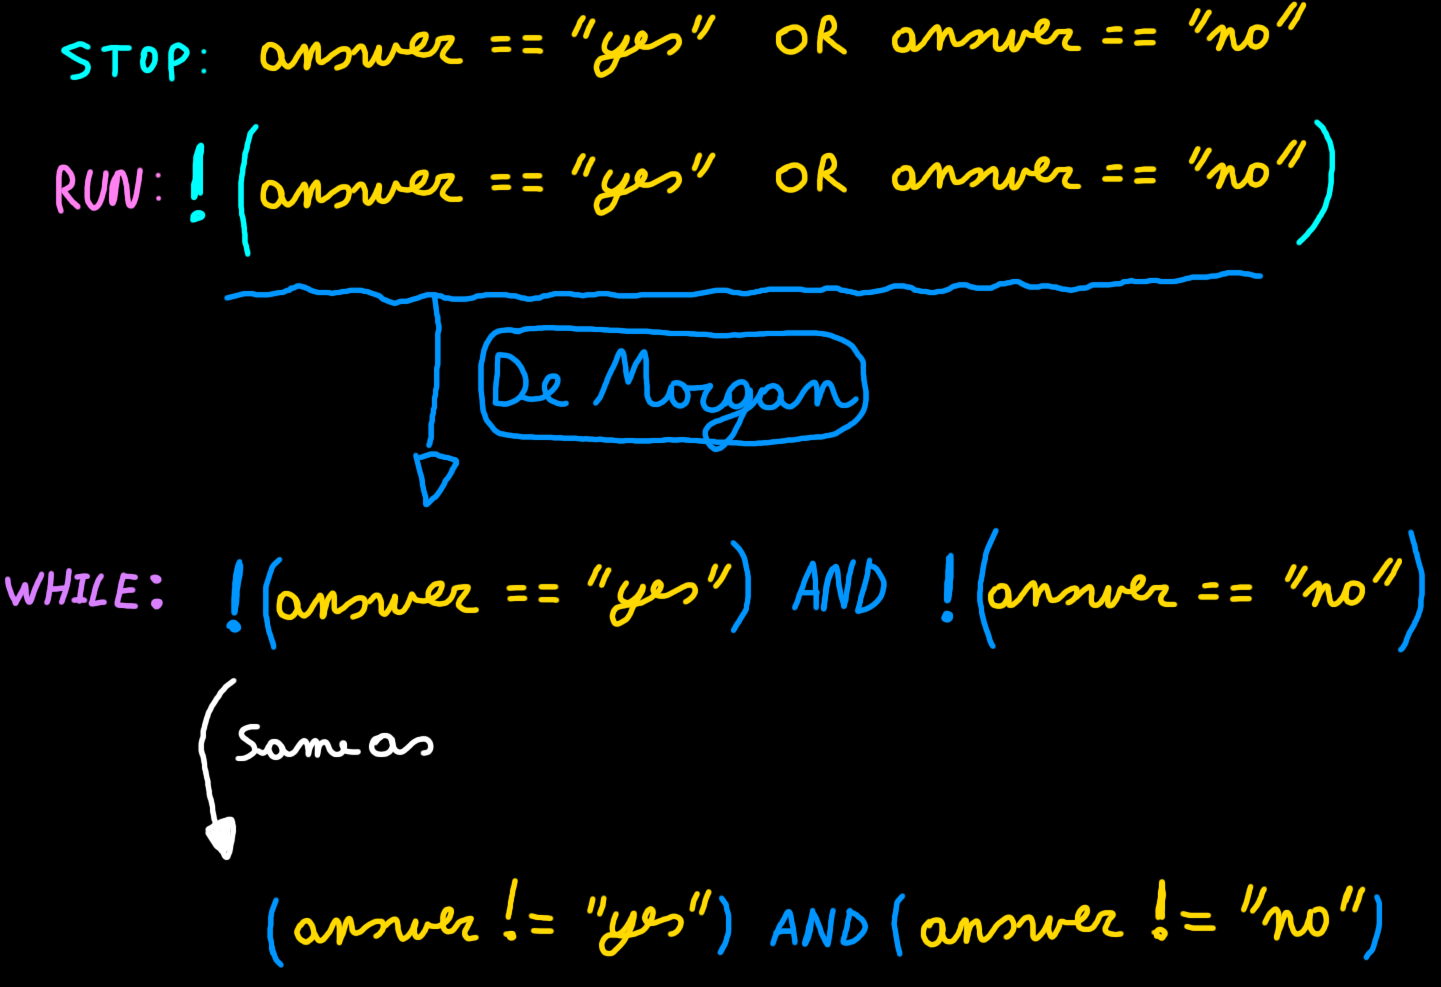 STOP: answer == "yes" OR answer == "no"
RUN: ! (answer == "yes" OR answer == "no")
De Morgan
WHILE: !(answer == "yes") AND !(answer == "no")
Same as
(answer != "yes") AND (answer != "no")